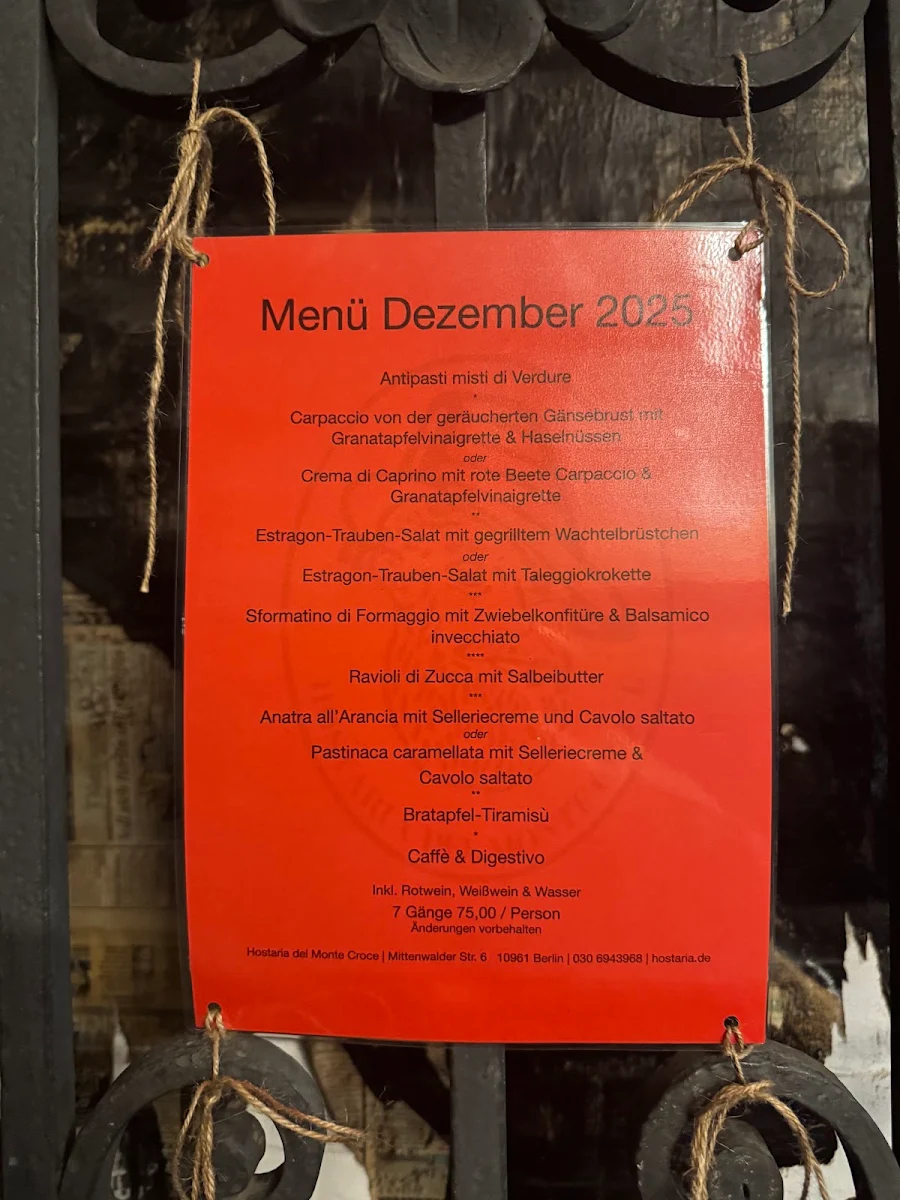 Menü Dezember 2025
Antipasti misti di Verdure
*
Carpaccio von der geräucherten Gänsebrust mit
Granatapfelvinaigrette & Haselnüssen
oder
Crema di Caprino mit rote Beete Carpaccio &
Granatapfelvinaigrette
**
Estragon-Trauben-Salat mit gegrilltem Wachtelbrüstchen
oder
Estragon-Trauben-Salat mit Taleggiokrokette
***
Sformatino di Formaggio mit Zwiebelkonfitüre & Balsamico
invecchiato
****
Ravioli di Zucca mit Salbeibutter
***
Anatra all'Arancia mit Selleriecreme und Cavolo saltato
oder
Pastinaca caramellata mit Selleriecreme &
Cavolo saltato
**
Bratapfel-Tiramisù
*
Caffè & Digestivo
Inkl. Rotwein, Weißwein & Wasser
7 Gänge 75,00 / Person
Änderungen vorbehalten
Hostaria del Monte Croce | Mittenwalder Str. 6 10961 Berlin | 030 6943968 | hostaria.de